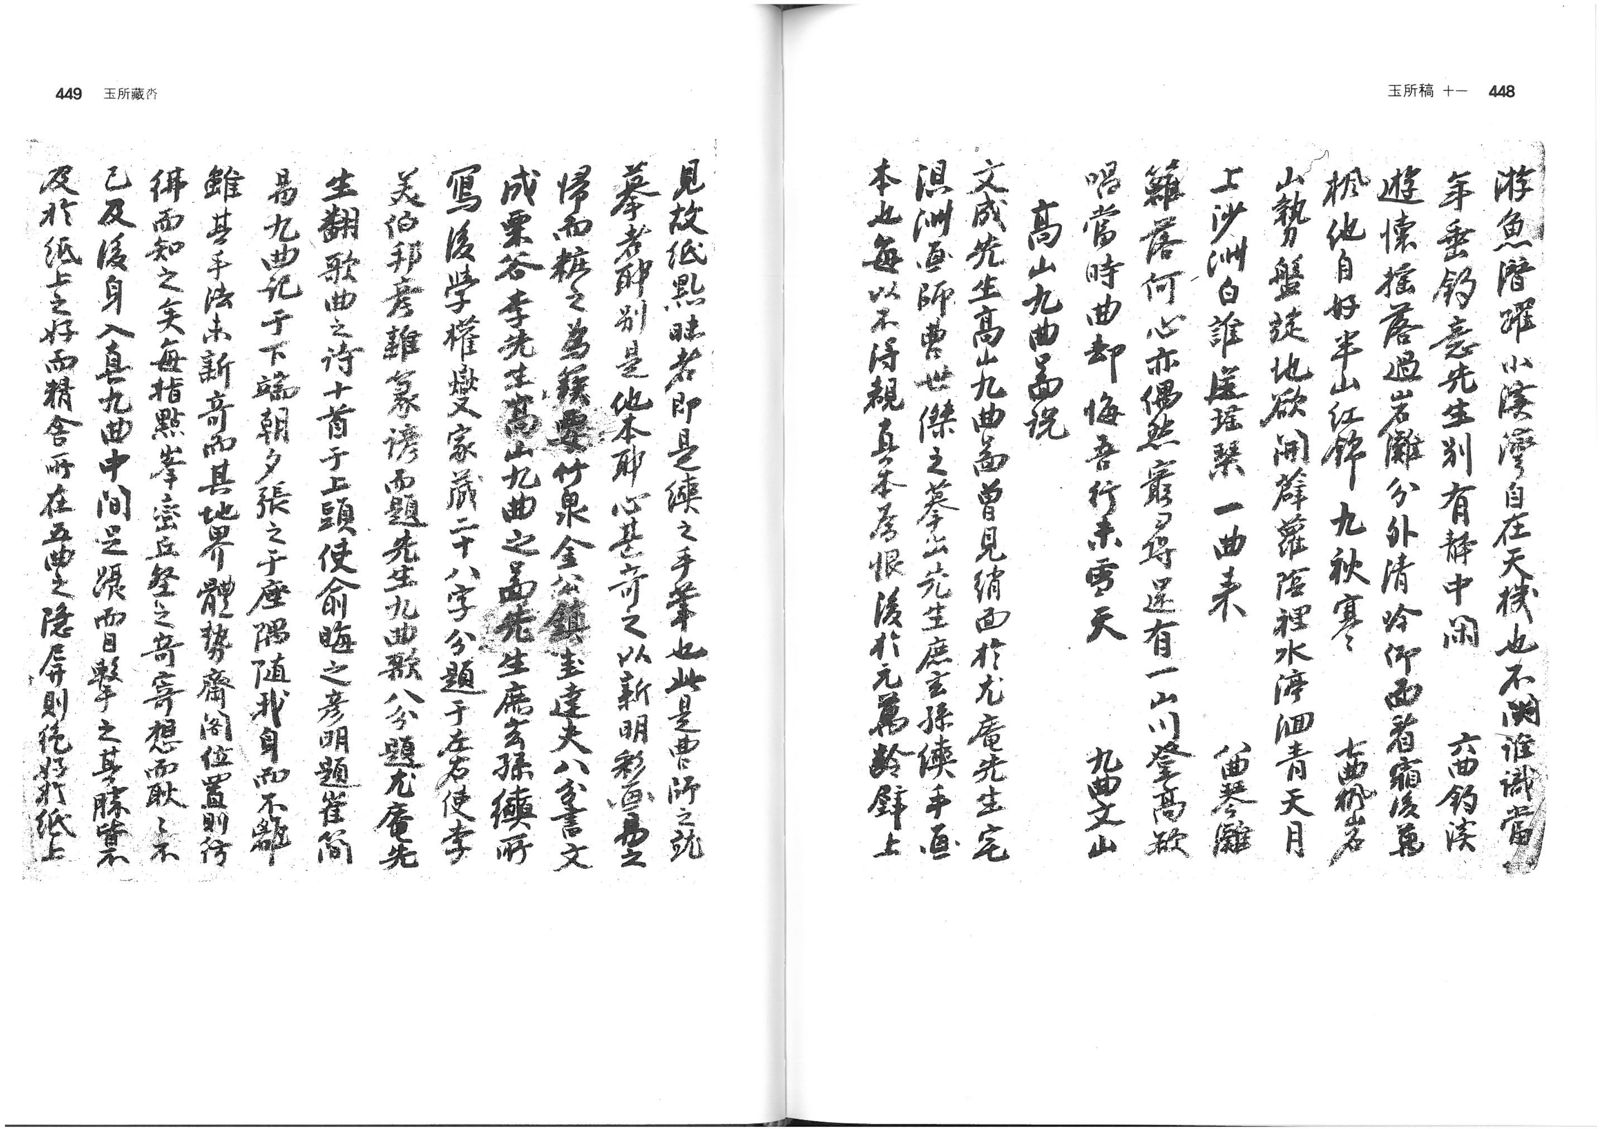 玉所稿 十一 448
游魚潛躍小溪灣自在天機也不關誰識當
年垂釣意先生別有靜中閑 六曲釣溪
遊懷搖落過岩灘分外清冷仰面看霜後萬
楓他自好半山紅錦九秋寒 七曲楓岩
山勢盤旋地欲開薜蘿陰裡水渟洄青天月
上沙洲白誰送瑤琴一曲來 八曲琴灘
籬落何心亦偶然窮尋還有一山川登高欲
唱當時曲却悔吾行未雪天 九曲文山
高山九曲啚說
文成先生高山九曲啚曾見綃面於尤庵先生宅
滄洲画師曺世傑之摹出先生庶玄孫續手画
本也每以不得覩真本為恨後於元萬齡壁上
449 玉所藏呇
見故紙點昧者即是續之手筆也此是曺師之
摹者耶別是他本耶心甚奇之以新明彩画易之
歸而粧之為簇要竹泉金公鎮圭達夫八分書文
成栗谷李先生高山九曲之啚先生庶玄孫續所
寫後學權燮文家藏二十八字分題于左右使李
美伯邦彥雜篆諺而題先生九曲歌八分題尤庵先
生翻歌曲之詩十首于上頭使俞晦之彥明題崔簡
易九曲記于下端朝夕張之于座隅隨我身而不離
雖其手法未新奇而其地界體勢齋閣位置則彷
彿而知之矣每指點峯巒丘壑之奇寄想而耿〻不
已及後身入真九曲中間足躡而目擊之其勝實不
及於紙上之好而精舍所在五曲之隱屏則絕好於紙上